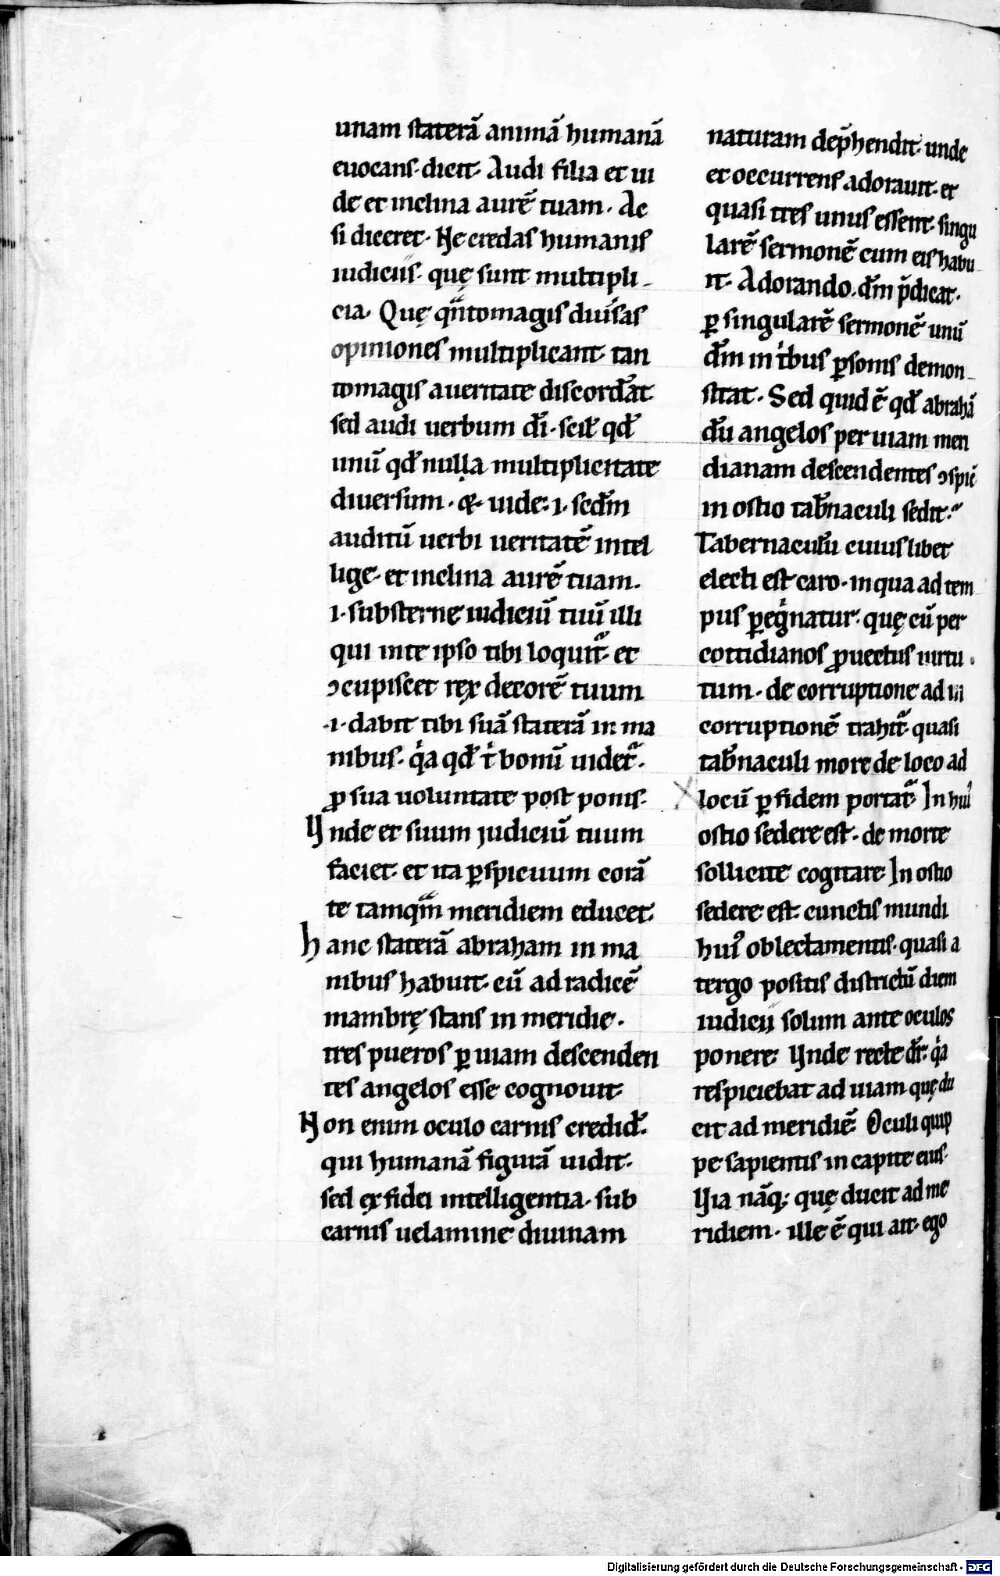 unam staterā animā humanā
euocans· dicit· Audi filia et ui
de et inclina aurē tuam· Ac
si diceret· Ne credas humanis
iudiciis· quę sunt multipli-
cia· Quę q̄ntomagis diuͥsas
opiniones multiplicant tan
tomagis a ueritate discordāt·
sed audi uerbum dī· scil̄ qd̄
unū qd̄ nulla multiplicitate
diuersum· & uide· i· scd̄m
auditū uerbi ueritatē intel
lige· et inclina aurē tuam·
i· substerne iudiciū tuū illi
qui inte ipso tibi loquitᷓ et
ↄcupiscet rex decorē tuum
·i· dabit tibi suā staterā in ma
nibus· qͥa qd̄ tͥ bonū uidetᷓ·
ꝓ sua uoluntate post ponis·
Vnde et suum judiciū tuum
faciet· et ita ꝑspicuum corā
te tamq̄m meridiem educet·
hanc staterā abraham in ma
nibus habuit· cū ad radicē
mambrę stans in meridie·
tres pueros ꝑ uiam descenden
tes angelos esse cognouit·
Non enim oculo carnis credid̄·
qui humanā figurā uidit·
sed ex fidei intelligentia· sub
carnis uelamine diuinam
naturam dep̄hendit· unde
et occurrens adorauit· et
quasi tres unus essent· singu
larē sermonē cum eis habu
it· Adorando· dm̄ p̄dicat·
ꝑ singularē sermonē unū
dm̄ in tͥbus ꝑsonis demon-
strat· Sed quid ē qd̄ abrahā
dū angelos per uiam meri
dianam descendentes ↄspicͥ
in ostio tab̄naculi sedit·
Tabernacul̄u cuius libet
electi est caro· in qua ad tem
pus ꝑegͥnatur· quę cū per
cottidianos ꝓuectus uirtu
tum· de corruptione ad in
corruptionē trahitᷓ· quasi
tab̄naculi more de loco ad
locū ꝑ fidem portatᷓ In huiꝰ
ostio sedere est· de morte
sollicite cogitare In ostio
sedere est· cunctis mundi
huiꝰ oblectamentis· quasi a
tergo positis districtū diem
iudicii solum ante oculos
ponere· Vnde recte dr̄· qͥa
respiciebat ad uiam quę du
cit ad meridiē· Oculi quip
pe sapientis in capite eius·
Via nāq; quę ducit ad me
ridiem· ille ē qui ait· ego
Digitalisierung gefördert durch die Deutsche Forschungsgemeinschaft - DFG